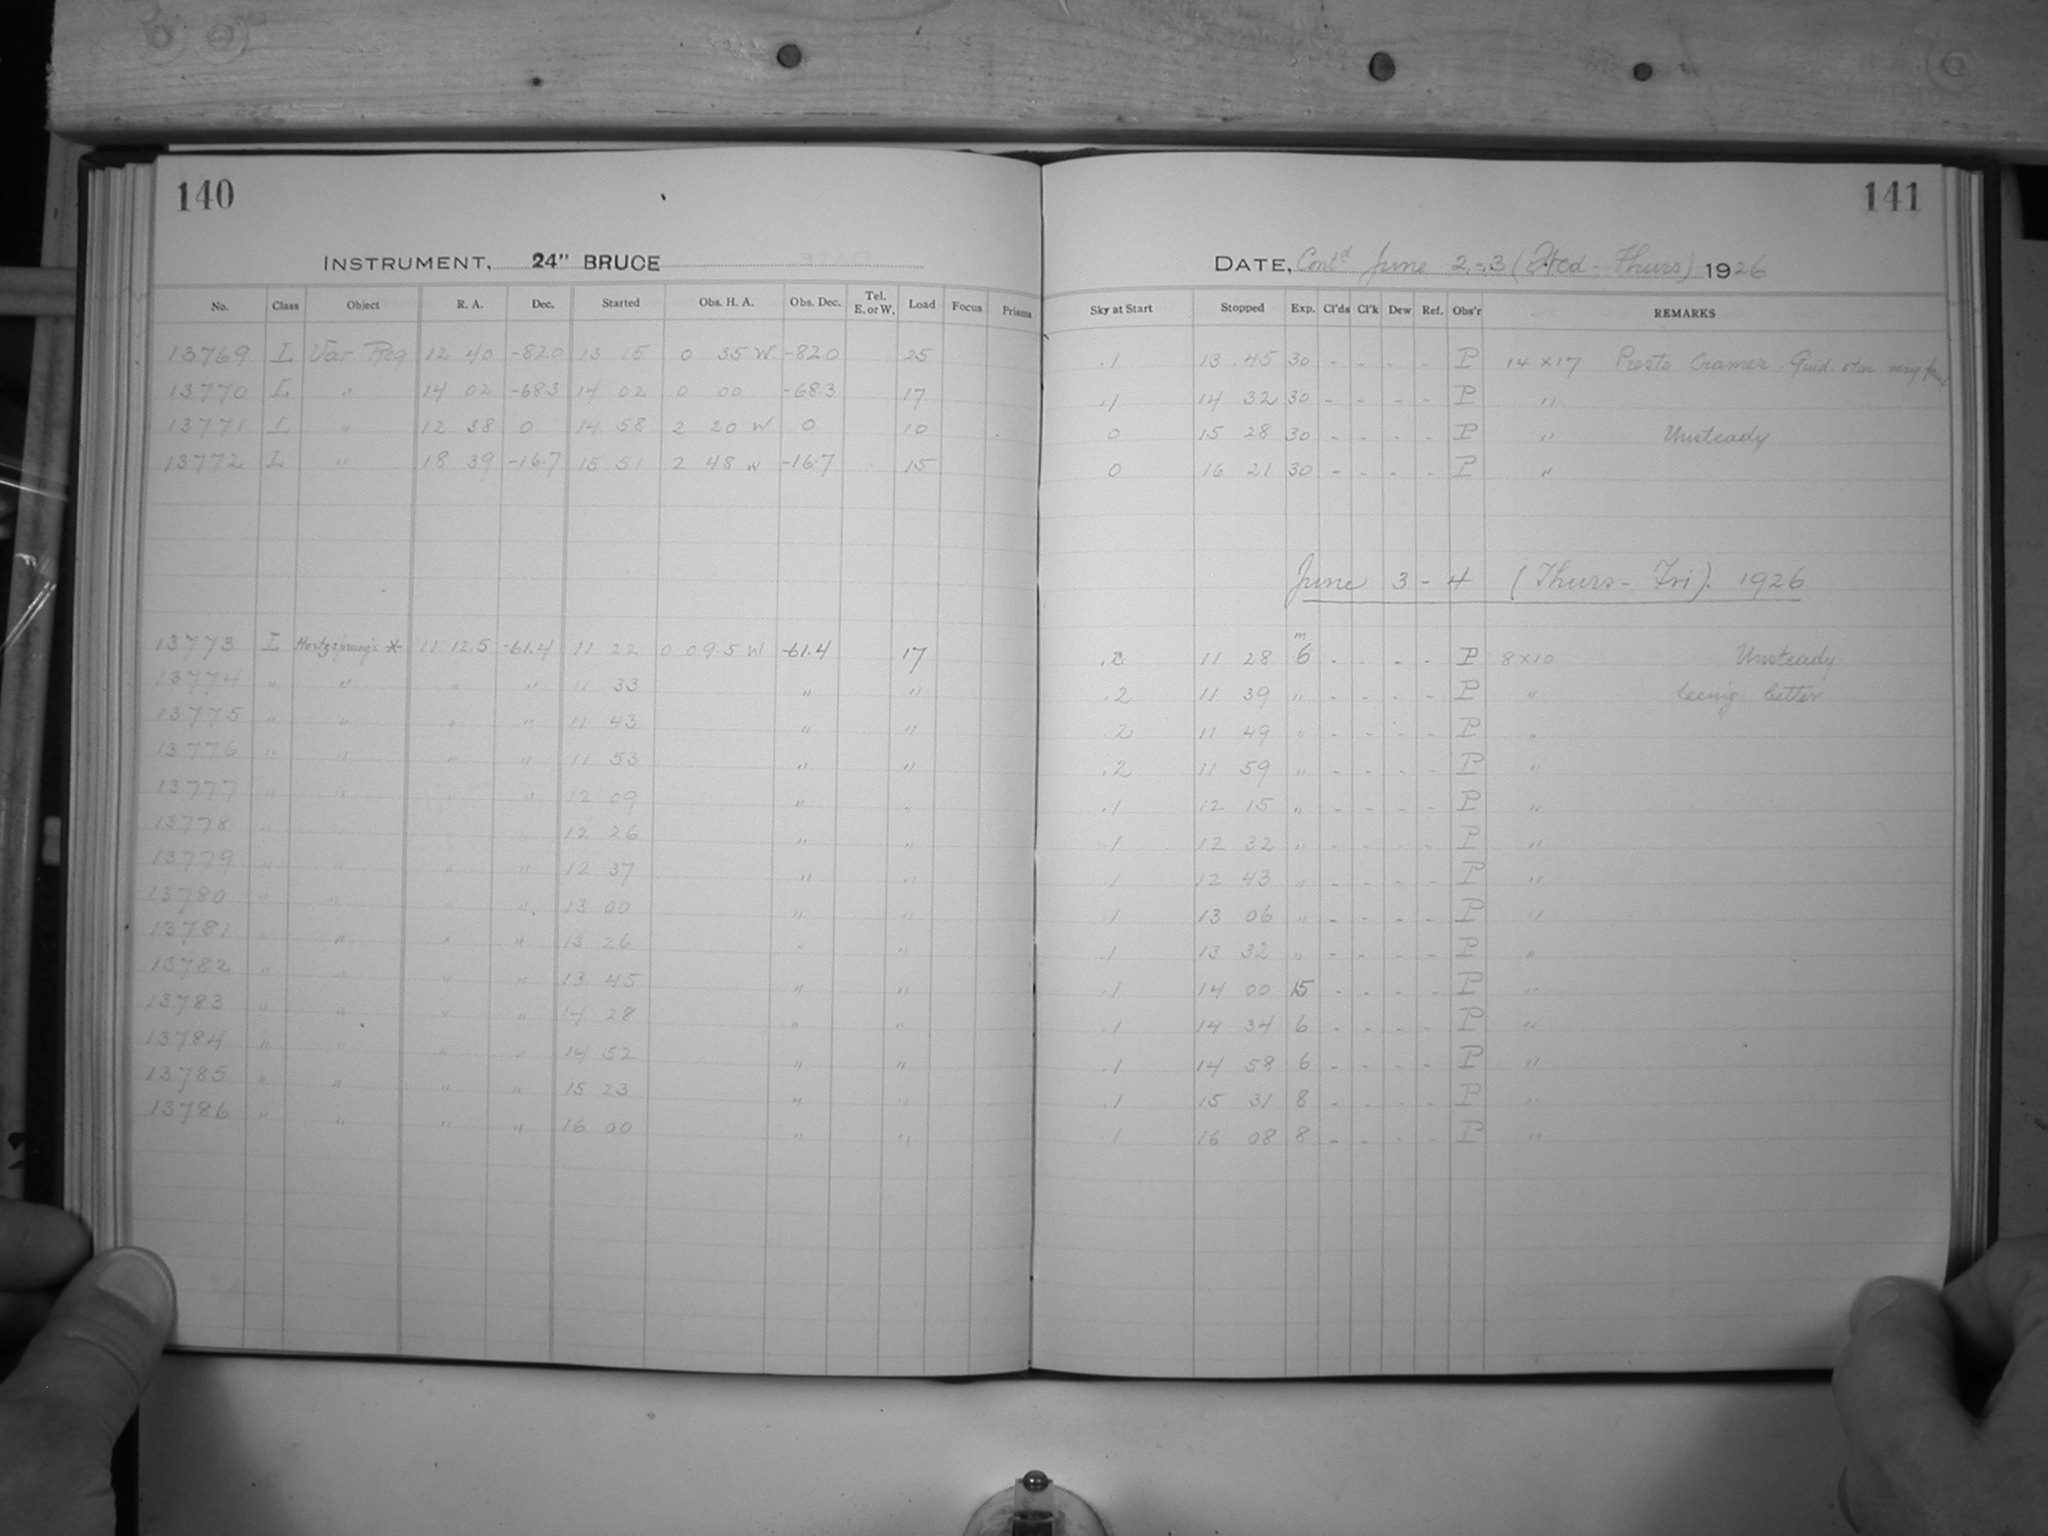 140
INSTRUMENT, 24" BRUCE
No. Class Object R. A. Dec. Started Obs. H. A. Obs. Dec. Tel. E. or W. Load Focus Prisms
13769 I Var Reg 12 40 -82.0 13 15 0 35 W -82.0 25
13770 I " 14 02 -68.3 14 02 0 00 -68.3 17
13771 I " 12 38 0 14 58 2 20 W 0 10
13772 I " 18 39 -16.7 15 51 2 48 W -16.7 15
13773 I Hertzsprung's * 11 12.5 -61.4 11 22 0 09.5 W -61.4 17
13774 " " " " 11 33 " "
13775 " " " " 11 43 " "
13776 " " " " 11 53 " "
13777 " " " " 12 09 " "
13778 " " 12 26 " "
13779 " " " " 12 37 " "
13780 " " " 13 00 " "
13781 " " " " 13 26 " "
13782 " " " " 13 45 " "
13783 " " " " 14 28 " "
13784 " " " " 14 52 " "
13785 " " " " 15 23 " "
13786 " " " " 16 00 " "
141
DATE, Contd June 2-3 (Wed - Thurs) 1926
Sky at Start Stopped Exp. Cl'ds Cl'k Dew Ref. Obs'r REMARKS
.1 13 45 30 - - - - P 14 x 17 Presto Cramer. Guid. star very
.1 14 32 30 - - - - P "
0 15 28 30 - - - - P " Unsteady
0 16 21 30 - - - - P "
June 3 - 4 (Thurs - Fri). 1926
.2 11 28 6m - - - - P 8 x 10 Unsteady
.2 11 39 " - - - - P " Seeing better
.2 11 49 " - - - - P "
.2 11 59 " - - - - P "
.1 12 15 " - - - - P "
.1 12 32 " - - - - P "
.1 12 43 " - - - - P "
.1 13 06 " - - - - P "
.1 13 32 " - - - - P "
.1 14 00 15 - - - - P "
.1 14 34 6 - - - - P "
.1 14 58 6 - - - - P "
.1 15 31 8 - - - - P "
.1 16 08 8 - - - - P "